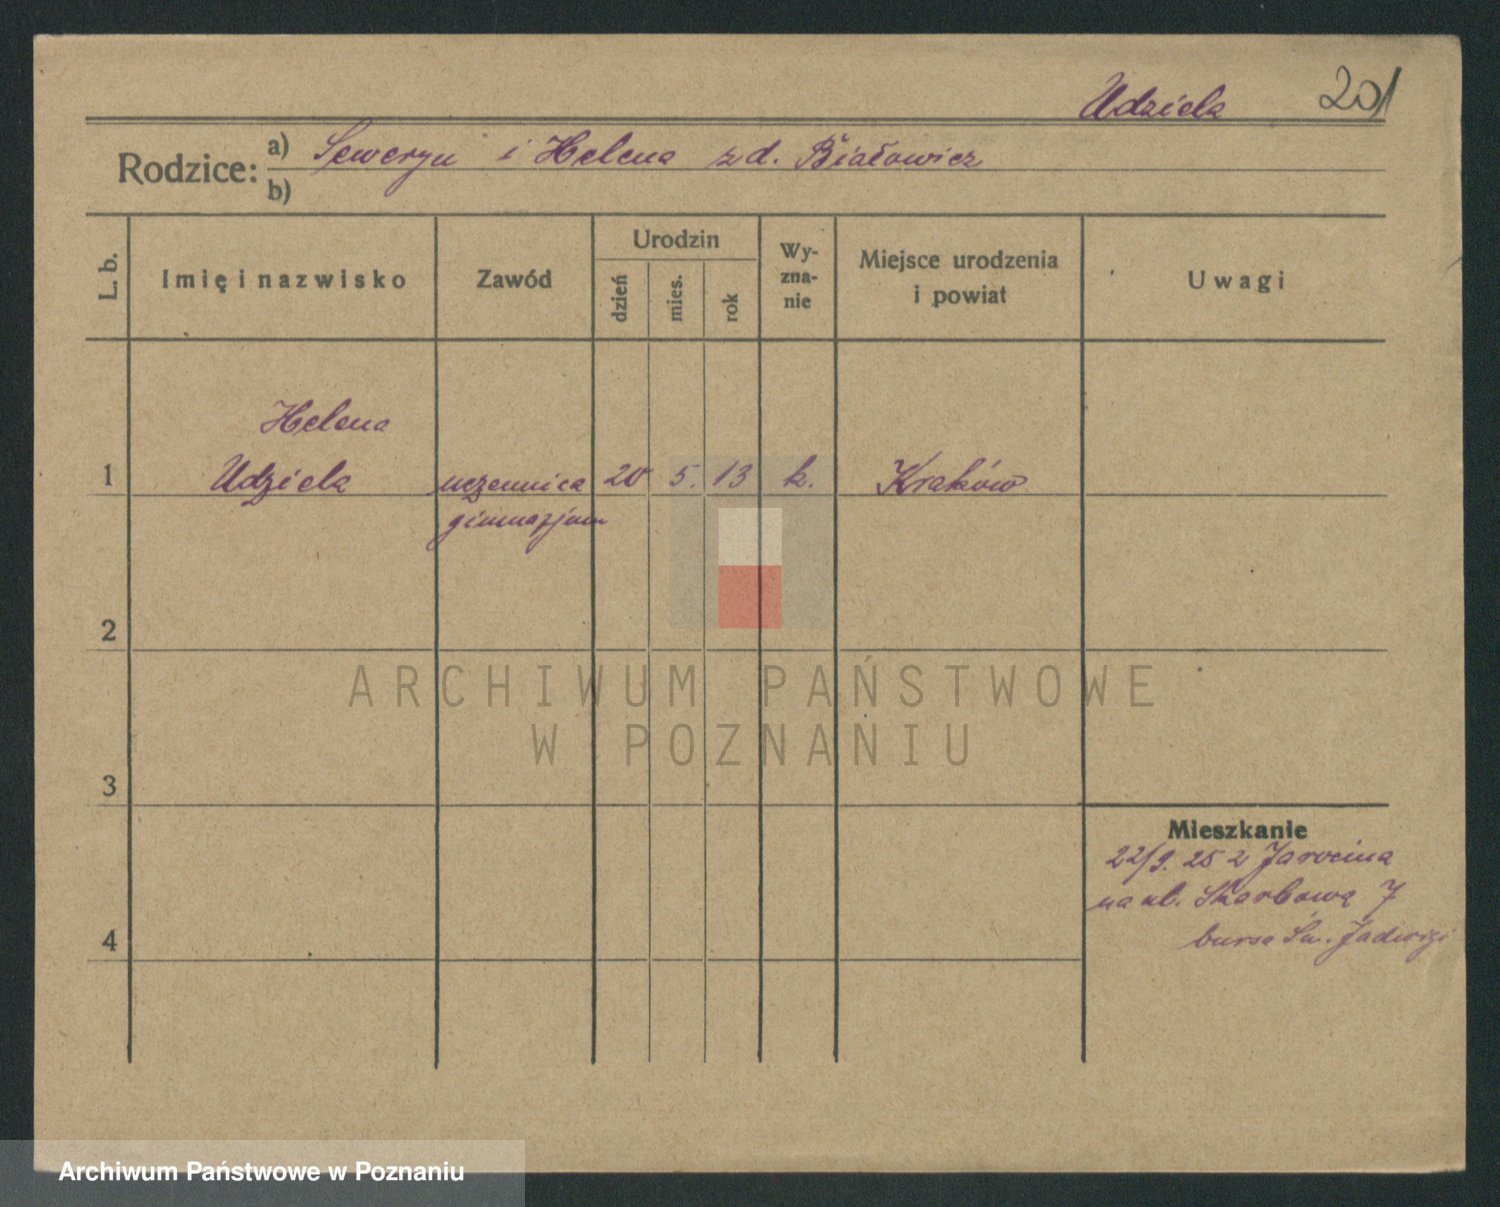 Udziela 201
Rodzice: a) Seweryn i Helena z d. Białowicz
b)
L. b.
Imię i nazwisko
Zawód
Urodzin
dzień
mies.
rok
Wy-
zna-
nie
Miejsce urodzenia
i powiat
Uwagi
Helena
1 Udziela uczennica 20 5. 13 k. Kraków
gimnazjum
2
ARCHIWUM PAŃSTWOWE
W POZNANIU
3
Mieszkanie
22/9. 25 z Jarocina
na ul. Skarbową 7
4 bursa Św. Jadwigi
Archiwum Państwowe w Poznaniu